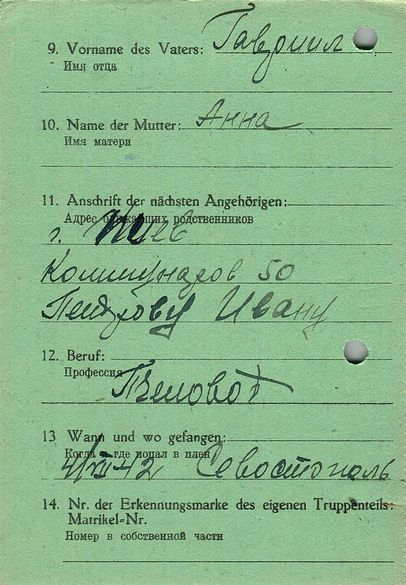 9. Vorname des Vaters: Гавриил
Имя отца
10. Name der Mutter: Анна
Имя матери
11. Anschrift der nächsten Angehörigen:
Адрес ближайших родственников
г. Киев
Коммунаров 50
Петрову Ивану
12. Beruf:
Профессия
Пчеловод
13 Wann und wo gefangen:
Когда и где попал в плен
4/VII 42 Севостополь
14. Nr. der Erkennungsmarke des eigenen Truppenteils:
Matrikel-Nr.
Номер в собственной части